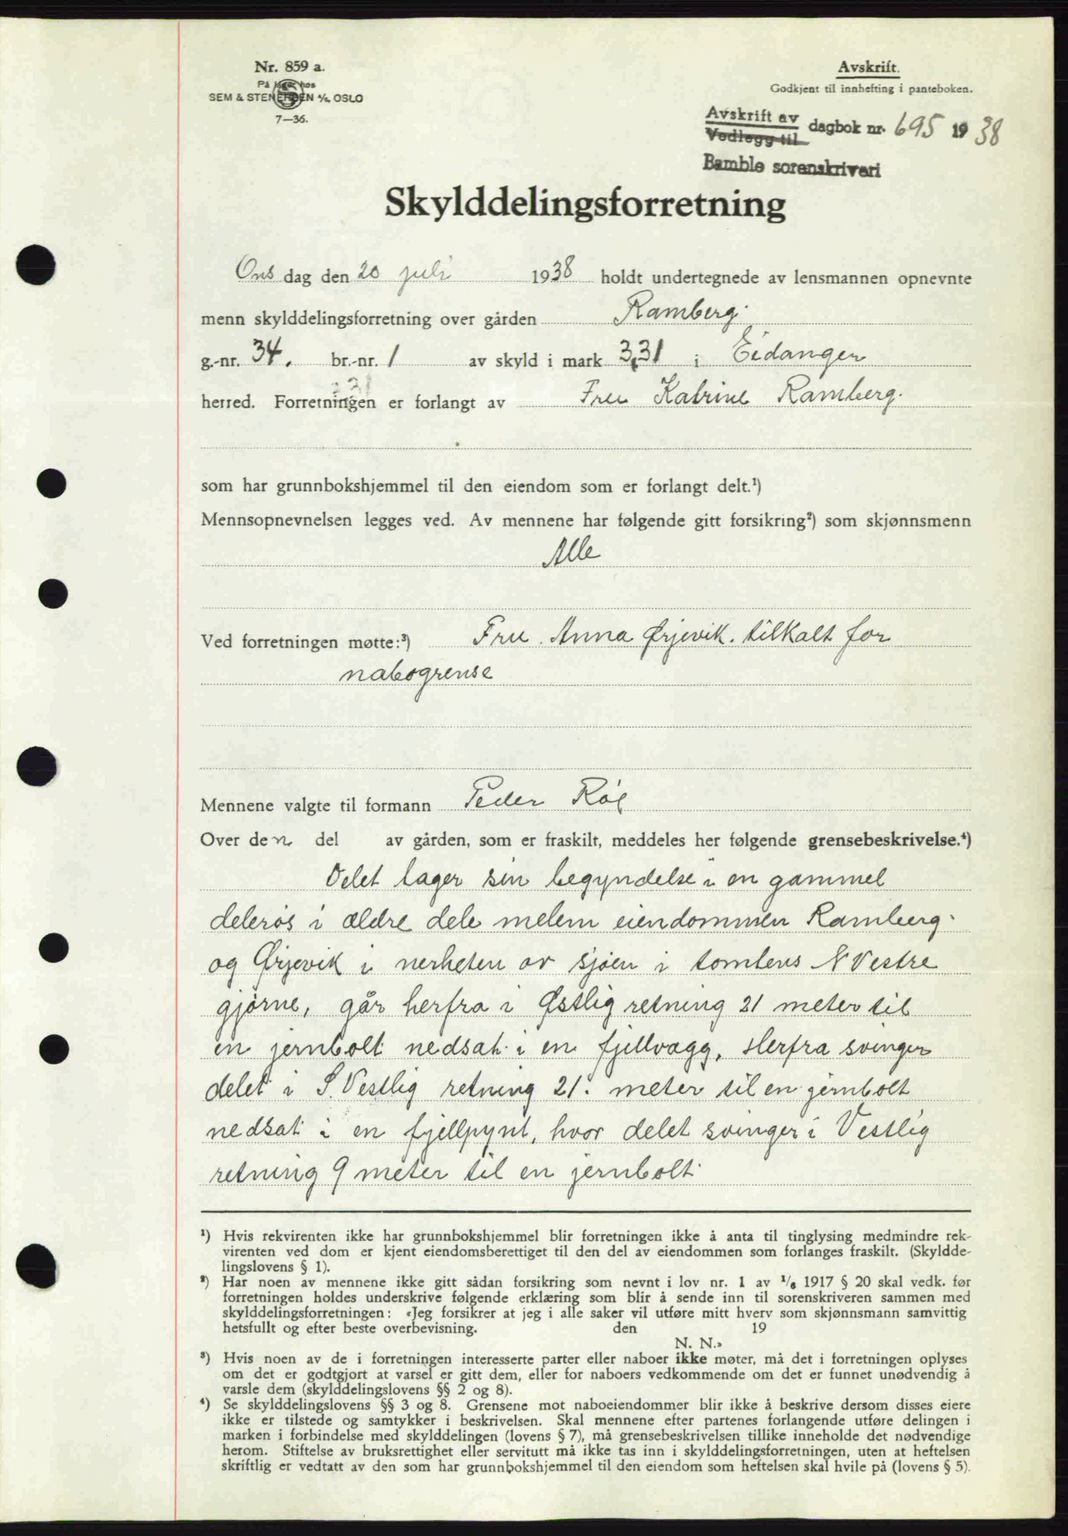 Nr. 859 a.
På lager hos
SEM & STENERSEN A/S, OSLO
7—36.
Avskrift.
Godkjent til innhefting i panteboken.
Avskrift av
Vedlegg til
dagbok nr. 695 1938
Bamble sorenskriveri
Skylddelingsforretning
Ons dag den 20 juli 1938 holdt undertegnede av lensmannen opnevnte
menn skylddelingsforretning over gården Ramberg.
g.-nr. 34. br.-nr. 1 av skyld i mark 3,31 i Eidanger
herred. Forretningen er forlangt av Fru Katrine Ramberg.
som har grunnbokshjemmel til den eiendom som er forlangt delt.¹)
Mennsopnevnelsen legges ved. Av mennene har følgende gitt forsikring²) som skjønnsmenn
Alle
Ved forretningen møtte:³) Fru. Anna Ørjevik. tilkalt for
nabogrense
Mennene valgte til formann Peder
Over den del av gården, som er fraskilt, meddeles her følgende grensebeskrivelse.⁴)
Delet tager sin begyndelse i en gammel
delerøs i ældre dele melem eiendommen Ramberg.
og Ørjevik i nerheten av sjøen i tomtens N Vestre
gjørne, går herfra i Østlig retning 21 meter til
en jernbolt nedsat i en fjellvægg, Herfra svinger
delet i S. Vestlig retning 21. meter til en jernbolt
nedsat i en fjellpynt, hvor delet svinger i Vestlig
retning 9 meter til en jernbolt
¹) Hvis rekvirenten ikke har grunnbokshjemmel blir forretningen ikke å anta til tinglysing medmindre rek-
virenten ved dom er kjent eiendomsberettiget til den del av eiendommen som forlanges fraskilt. (Skyldde-
lingslovens § 1).
²) Har noen av mennene ikke gitt sådan forsikring som nevnt i lov nr. 1 av 1/6 1917 § 20 skal vedk. før
forretningen holdes underskrive følgende erklæring som blir å sende inn til sorenskriveren sammen med
skylddelingsforretningen: «Jeg forsikrer at jeg i alle saker vil utføre mitt hverv som skjønnsmann samvittig
hetsfullt og efter beste overbevisning. den 19
N. N.»
³) Hvis noen av de i forretningen interesserte parter eller naboer ikke møter, må det i forretningen oplyses
om det er godtgjort at varsel er gitt dem, eller for naboers vedkommende om det er funnet unødvendig å
varsle dem (skylddelingslovens §§ 2 og 8).
⁴) Se skylddelingslovens §§ 3 og 8. Grensene mot naboeiendommer blir ikke å beskrive dersom disses eiere
ikke er tilstede og samtykker i beskrivelsen. Skal mennene efter partenes forlangende utføre delingen i
marken i forbindelse med skylddelingen (lovens § 7), må grensebeskrivelsen tillike inneholde det nødvendige
herom. Stiftelse av bruksrettighet eller servitutt må ikke tas inn i skylddelingsforretningen, uten at heftelsen
skriftlig er vedtatt av den som har grunnbokshjemmel til den eiendom som heftelsen skal hvile på (lovens § 5).